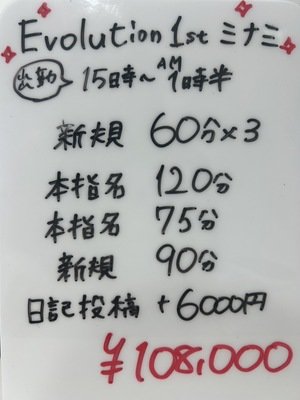 Evolution 1st ミナミ
出勤 15時～AM1時半
新規 60分×3
本指名 120分
本指名 75分
新規 90分
日記投稿 +6000円
¥108,000